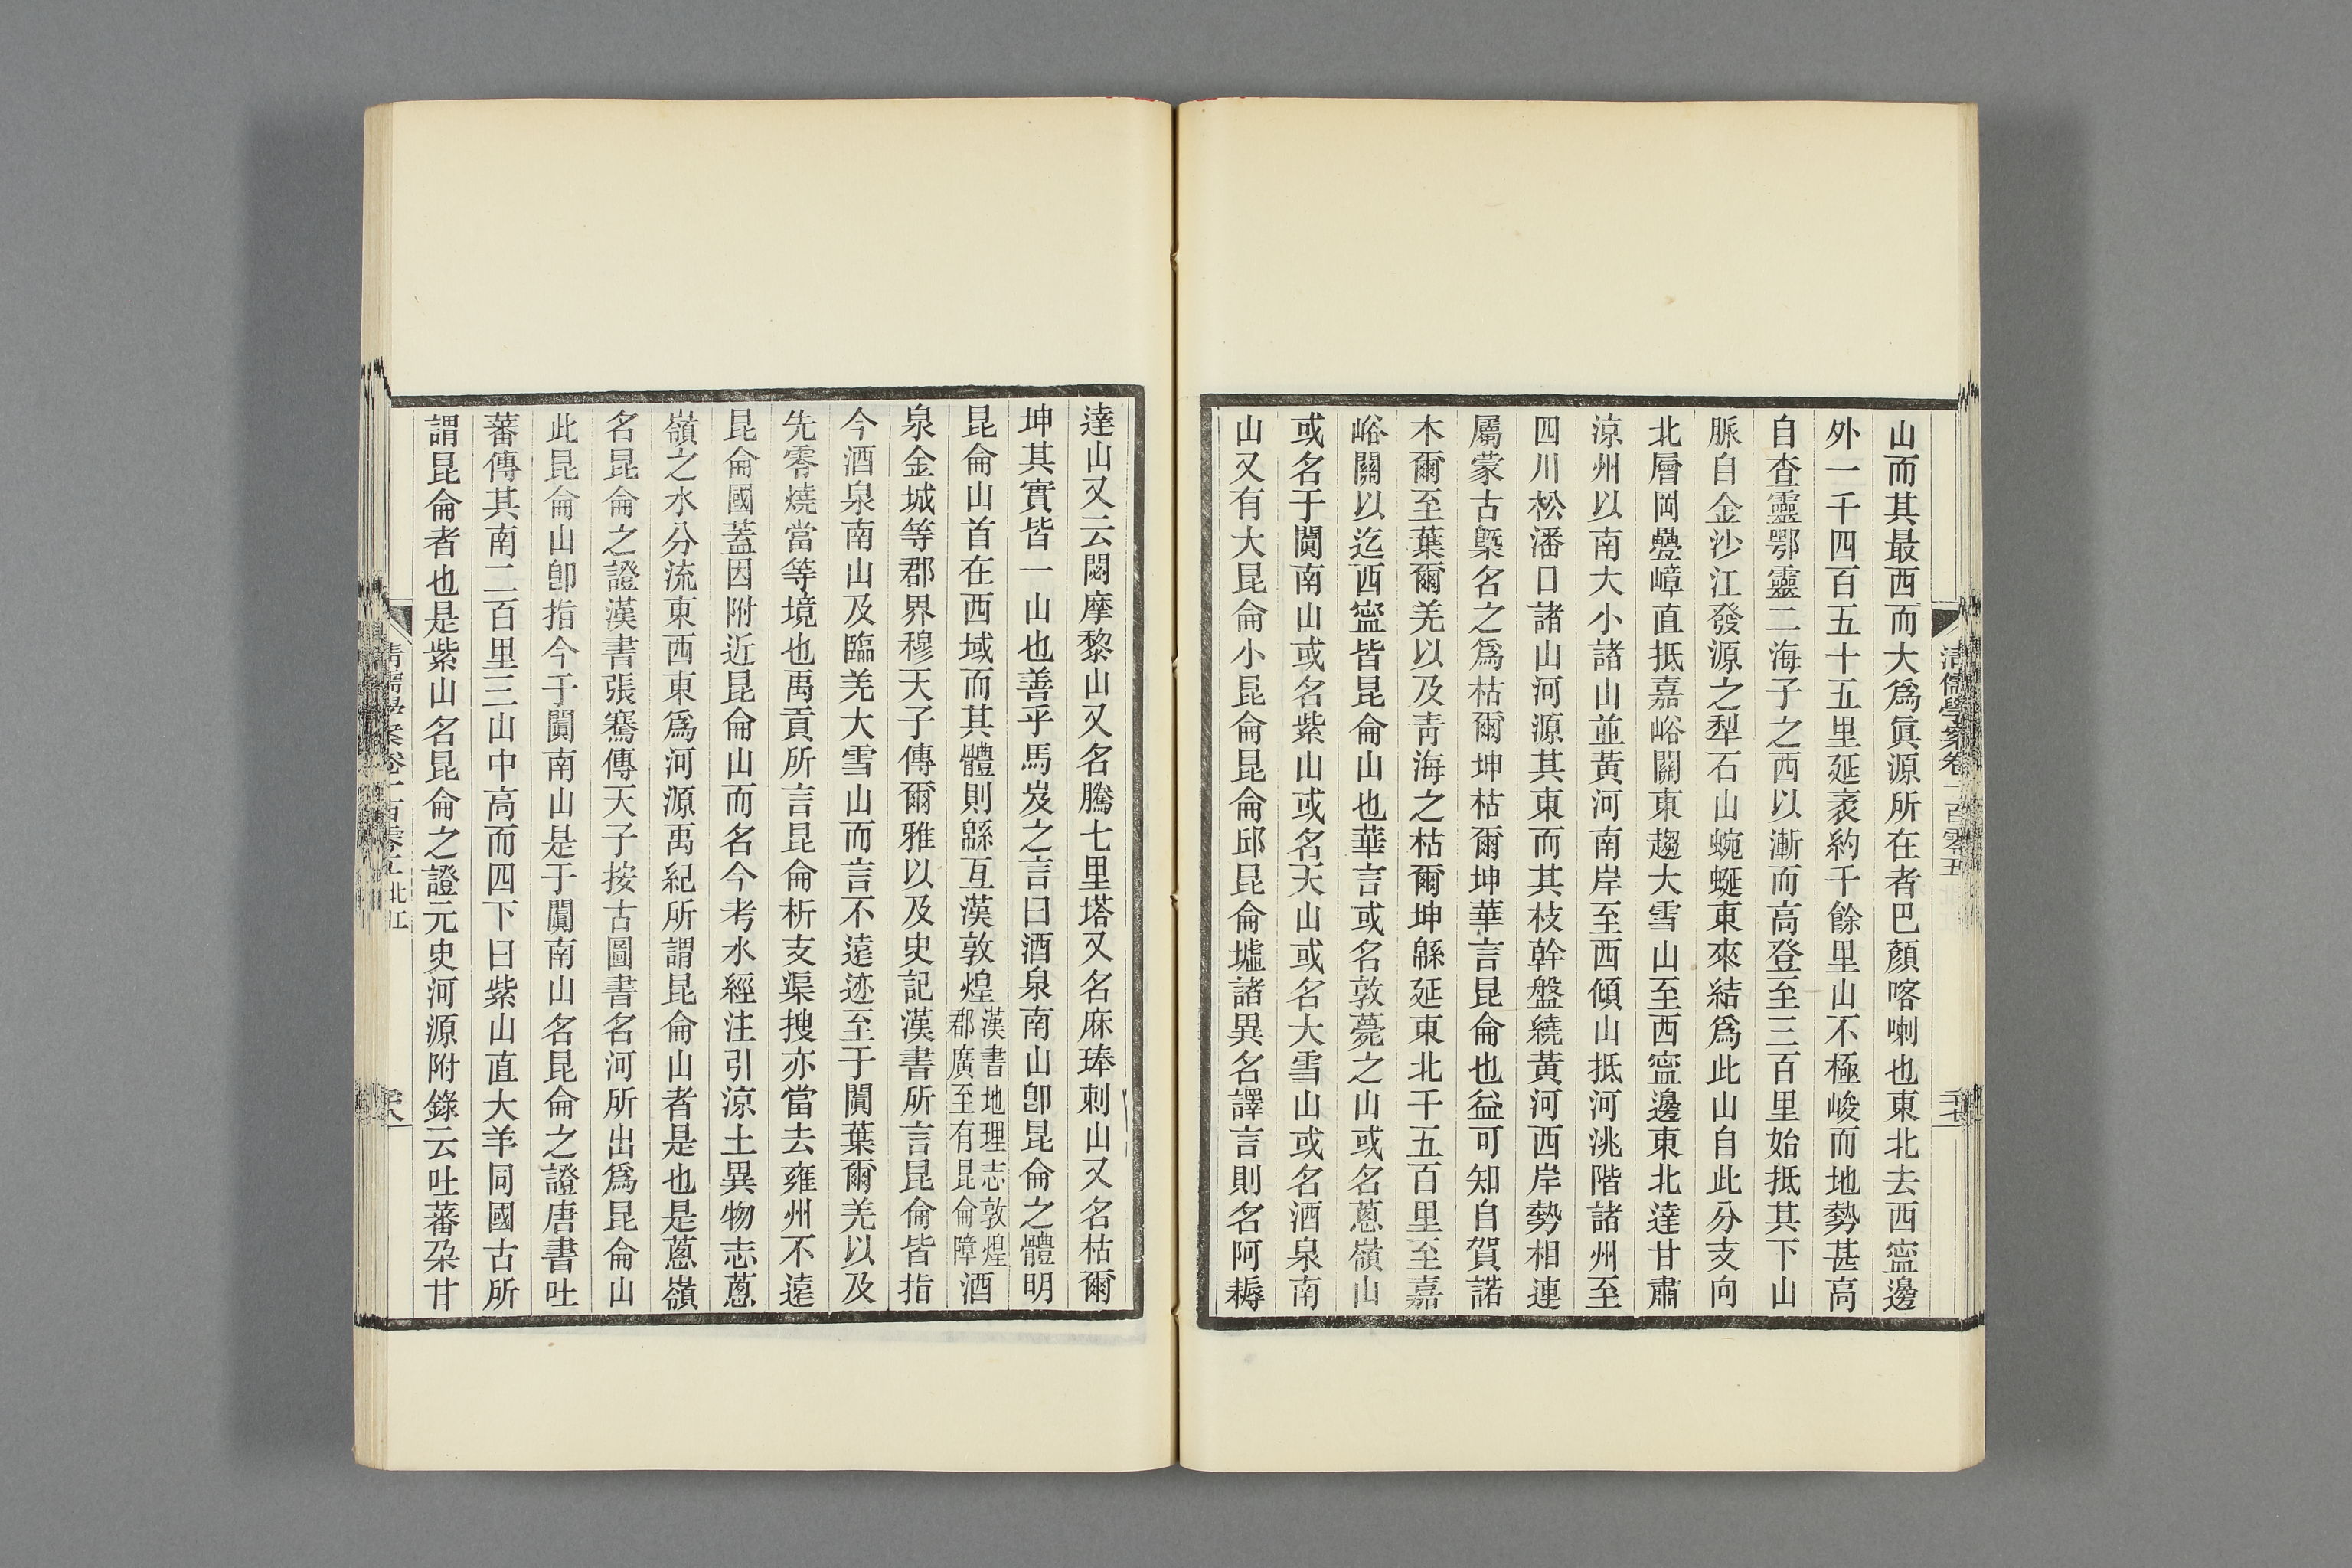 清儒學案卷一百零五
山而其最西而大爲眞源所在者巴顏喀喇也東北去西寍邊
外一千四百五十五里延袤約千餘里山不極峻而地勢甚高
自查靈鄂靈二海子之西以漸而高登至三百里始抵其下山
脈自金沙江發源之犁石山蜿蜒東來結爲此山自此分支向
北層岡疊嶂直抵嘉峪關東趨大雪山至西寍邊東北達甘肅
涼州以南大小諸山並黃河南岸至西傾山抵河洮階諸州至
四川松潘口諸山河源其東而其枝幹盤繞黃河西岸勢相連
屬蒙古槩名之爲枯爾坤枯爾坤華言昆侖也益可知自賀諾
木爾至葉爾羌以及靑海之枯爾坤緜延東北千五百里至嘉
峪關以迄西寍皆昆侖山也華言或名敦薨之山或名蔥嶺山
或名于闐南山或名紫山或名天山或名大雪山或名酒泉南
山又有大昆侖小昆侖昆侖邱昆侖墟諸異名譯言則名阿耨
達山又云悶摩黎山又名騰七里塔又名麻琫剌山又名枯爾
坤其實皆一山也善乎馬岌之言曰酒泉南山卽昆侖之體明
昆侖山首在西域而其體則緜亙漢敦煌漢書地理志敦煌郡廣至有昆侖障酒
泉金城等郡界穆天子傳爾雅以及史記漢書所言昆侖皆指
今酒泉南山及臨羌大雪山而言不遠迹至于闐葉爾羌以及
先零燒當等境也禹貢所言昆侖析支渠搜亦當去雍州不遠
昆侖國蓋因附近昆侖山而名今考水經注引涼土異物志蔥
嶺之水分流東西東爲河源禹紀所謂昆侖山者是也是蔥嶺
名昆侖之證漢書張騫傳天子按古圖書名河所出爲昆侖山
此昆侖山卽指今于闐南山是于闐南山名昆侖之證唐書吐
蕃傳其南二百里三山中高而四下曰紫山直大羊同國古所
謂昆侖者也是紫山名昆侖之證元史河源附錄云吐蕃朶甘
清儒學案卷一百零五 北江